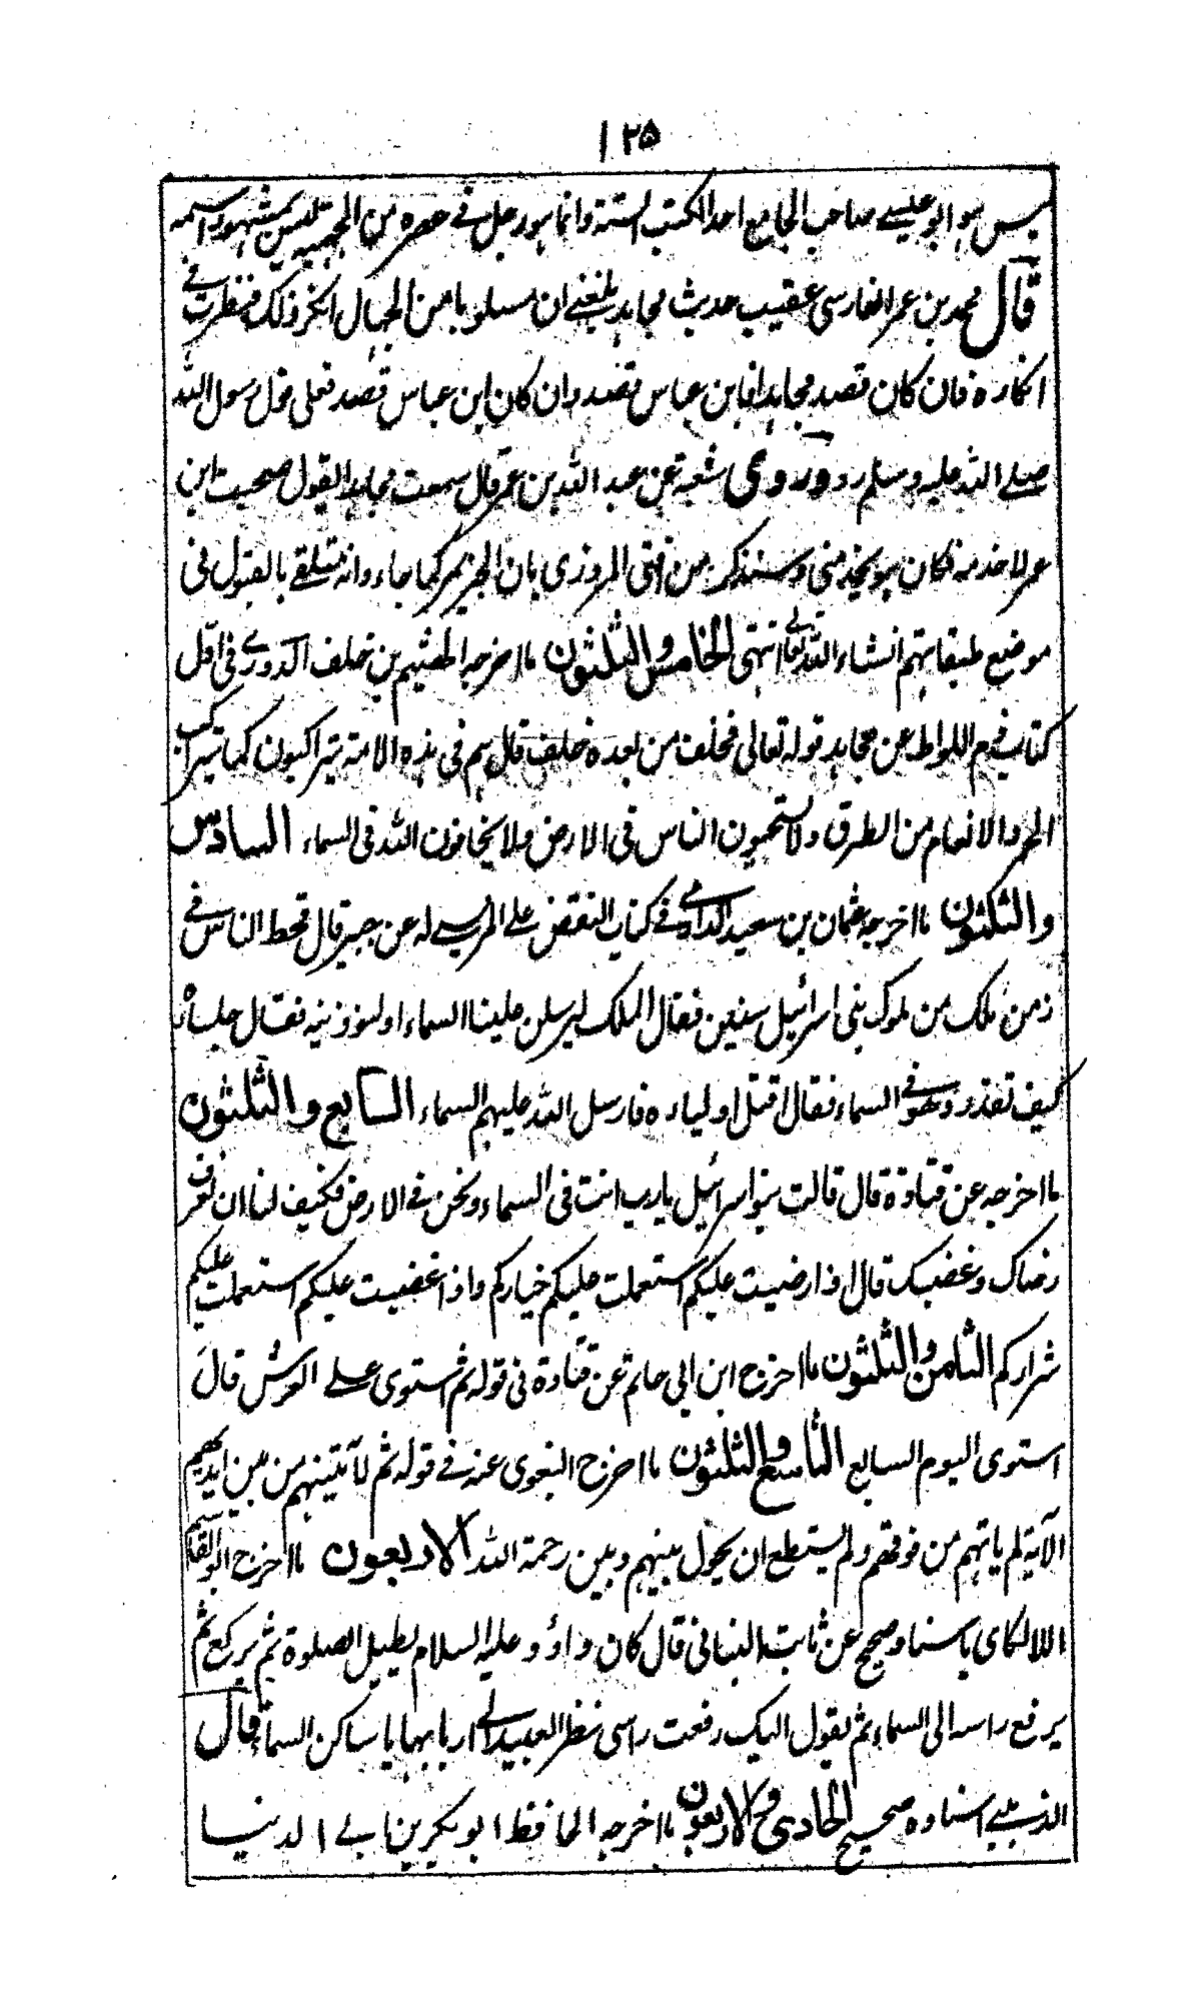 ١٢٥
ليس هو ابو عيسے صاحب الجامع احد الكتب الستة وانما هو رجل فے عصره من الجهمية ليس بمشهور اسمه
قال محمد بن عمر الفارسى عقيب حديث مجاهد بلغنے ان مسلوبا من الجهال انكر ذلك فنظرت فے
انكاره فان كان قصد مجاهدا فابن عباس قصد وان كان ابن عباس قصد فعلى قول رسول الله
صلے الله عليه وسلم رد وروى شعبة عن عبد الله بن عمر قال سمعت مجاهدا يقول صحبت ابن
عمر لاخدمه فكان هو يخدمنى وسنذكر من افتى المروزى بان الخبر يمر كما جاء وانه متلقے بالقبول فى
موضع طبقاتهم انشاء الله تعالے انتهى الخامس والثلثون ما اخرجه الهثيم بن خلف الدورى فى اول
كتاب ذم اللواط عن مجاهد قوله تعالى فخلف من بعده خلف قال هم فى هذه الامة يتراكبون كما تتراكب
الحمر والانعام من الطرق ولا يستحيون الناس فى الارض ولا يخافون الله فى السماء السادس
والثلثون ما اخرجه عثمان بن سعيد الدارمے فے كتاب النقض علے المريسے له عن جبير قال قحط الناس فے
زمن ملك من ملوك بنى اسرائيل سنين فقال الملك ليرسلن علينا السماء او لنوذينه فقال جلساءه
كيف تقدر وهو فے السماء فقال اقتل اولياءه فارسل الله عليهم السماء السابع والثلثون
ما اخرجه عن قتادة قال قالت بنو اسرائيل يارب انت فى السماء ونحن فے الارض فكيف لنا ان نعرف
رضاك وغضبك قال اذا رضيت عليكم استعملت عليكم خياركم واذا غضبت عليكم استعملت عليكم
شراركم الثامن والثلثون ما اخرج ابن ابى حاتم عن قتادة فى قوله ثم استوى علے العرش قال
استوى اليوم السابع التاسع والثلثون ما اخرج البغوى عنه فے قوله ثم لآتينهم من بين ايديهم
الآية لم ياتهم من فوقهم ولم يستطع ان يحول بينهم وبين رحمة الله الاربعون ما اخرج ابو القاسم
اللالكاى باسناد صحيح عن ثابت البنانى قال كان داؤد عليه السلام يطيل الصلوة ثم يركع ثم
يرفع راسه الى السماء ثم يقول اليك رفعت راسى نظر العبيد الے اربابها يا ساكن السماء قال
الذهبے اسناده صحيح الحادى والاربعون ما اخرجه الحافظ ابو بكر بن ابے الدنيا